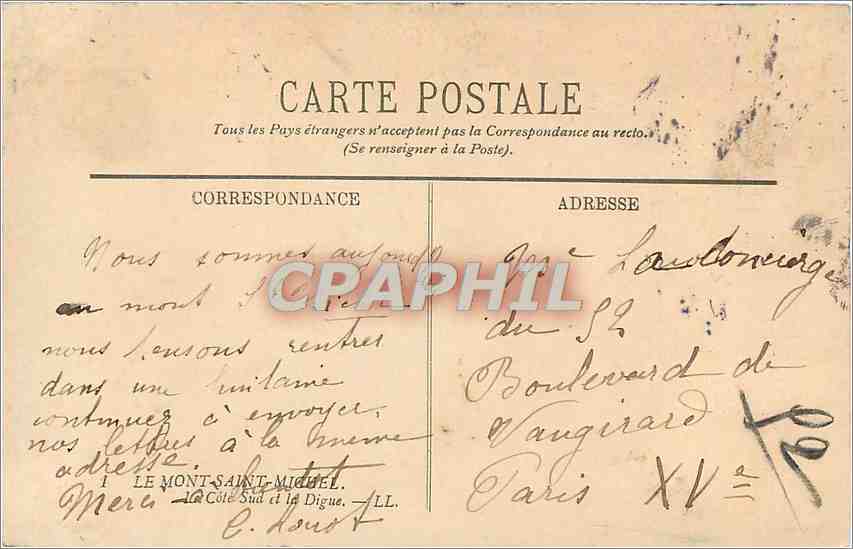 CARTE POSTALE
Tous les Pays étrangers n'acceptent pas la Correspondance au recto.
(Se renseigner à la Poste).
CORRESPONDANCE
Nous sommes
au mont
nous pensons rentrer
dans une huitaine
continuez à envoyer
nos lettres à la meme
adresse.
Merci
1 LE MONT-SAINT-MICHEL.
La Côte Sud et la Digue. — LL.
ADRESSE
du 52
Boulevard de
Vaugirard
Paris XVe
CPAPHIL